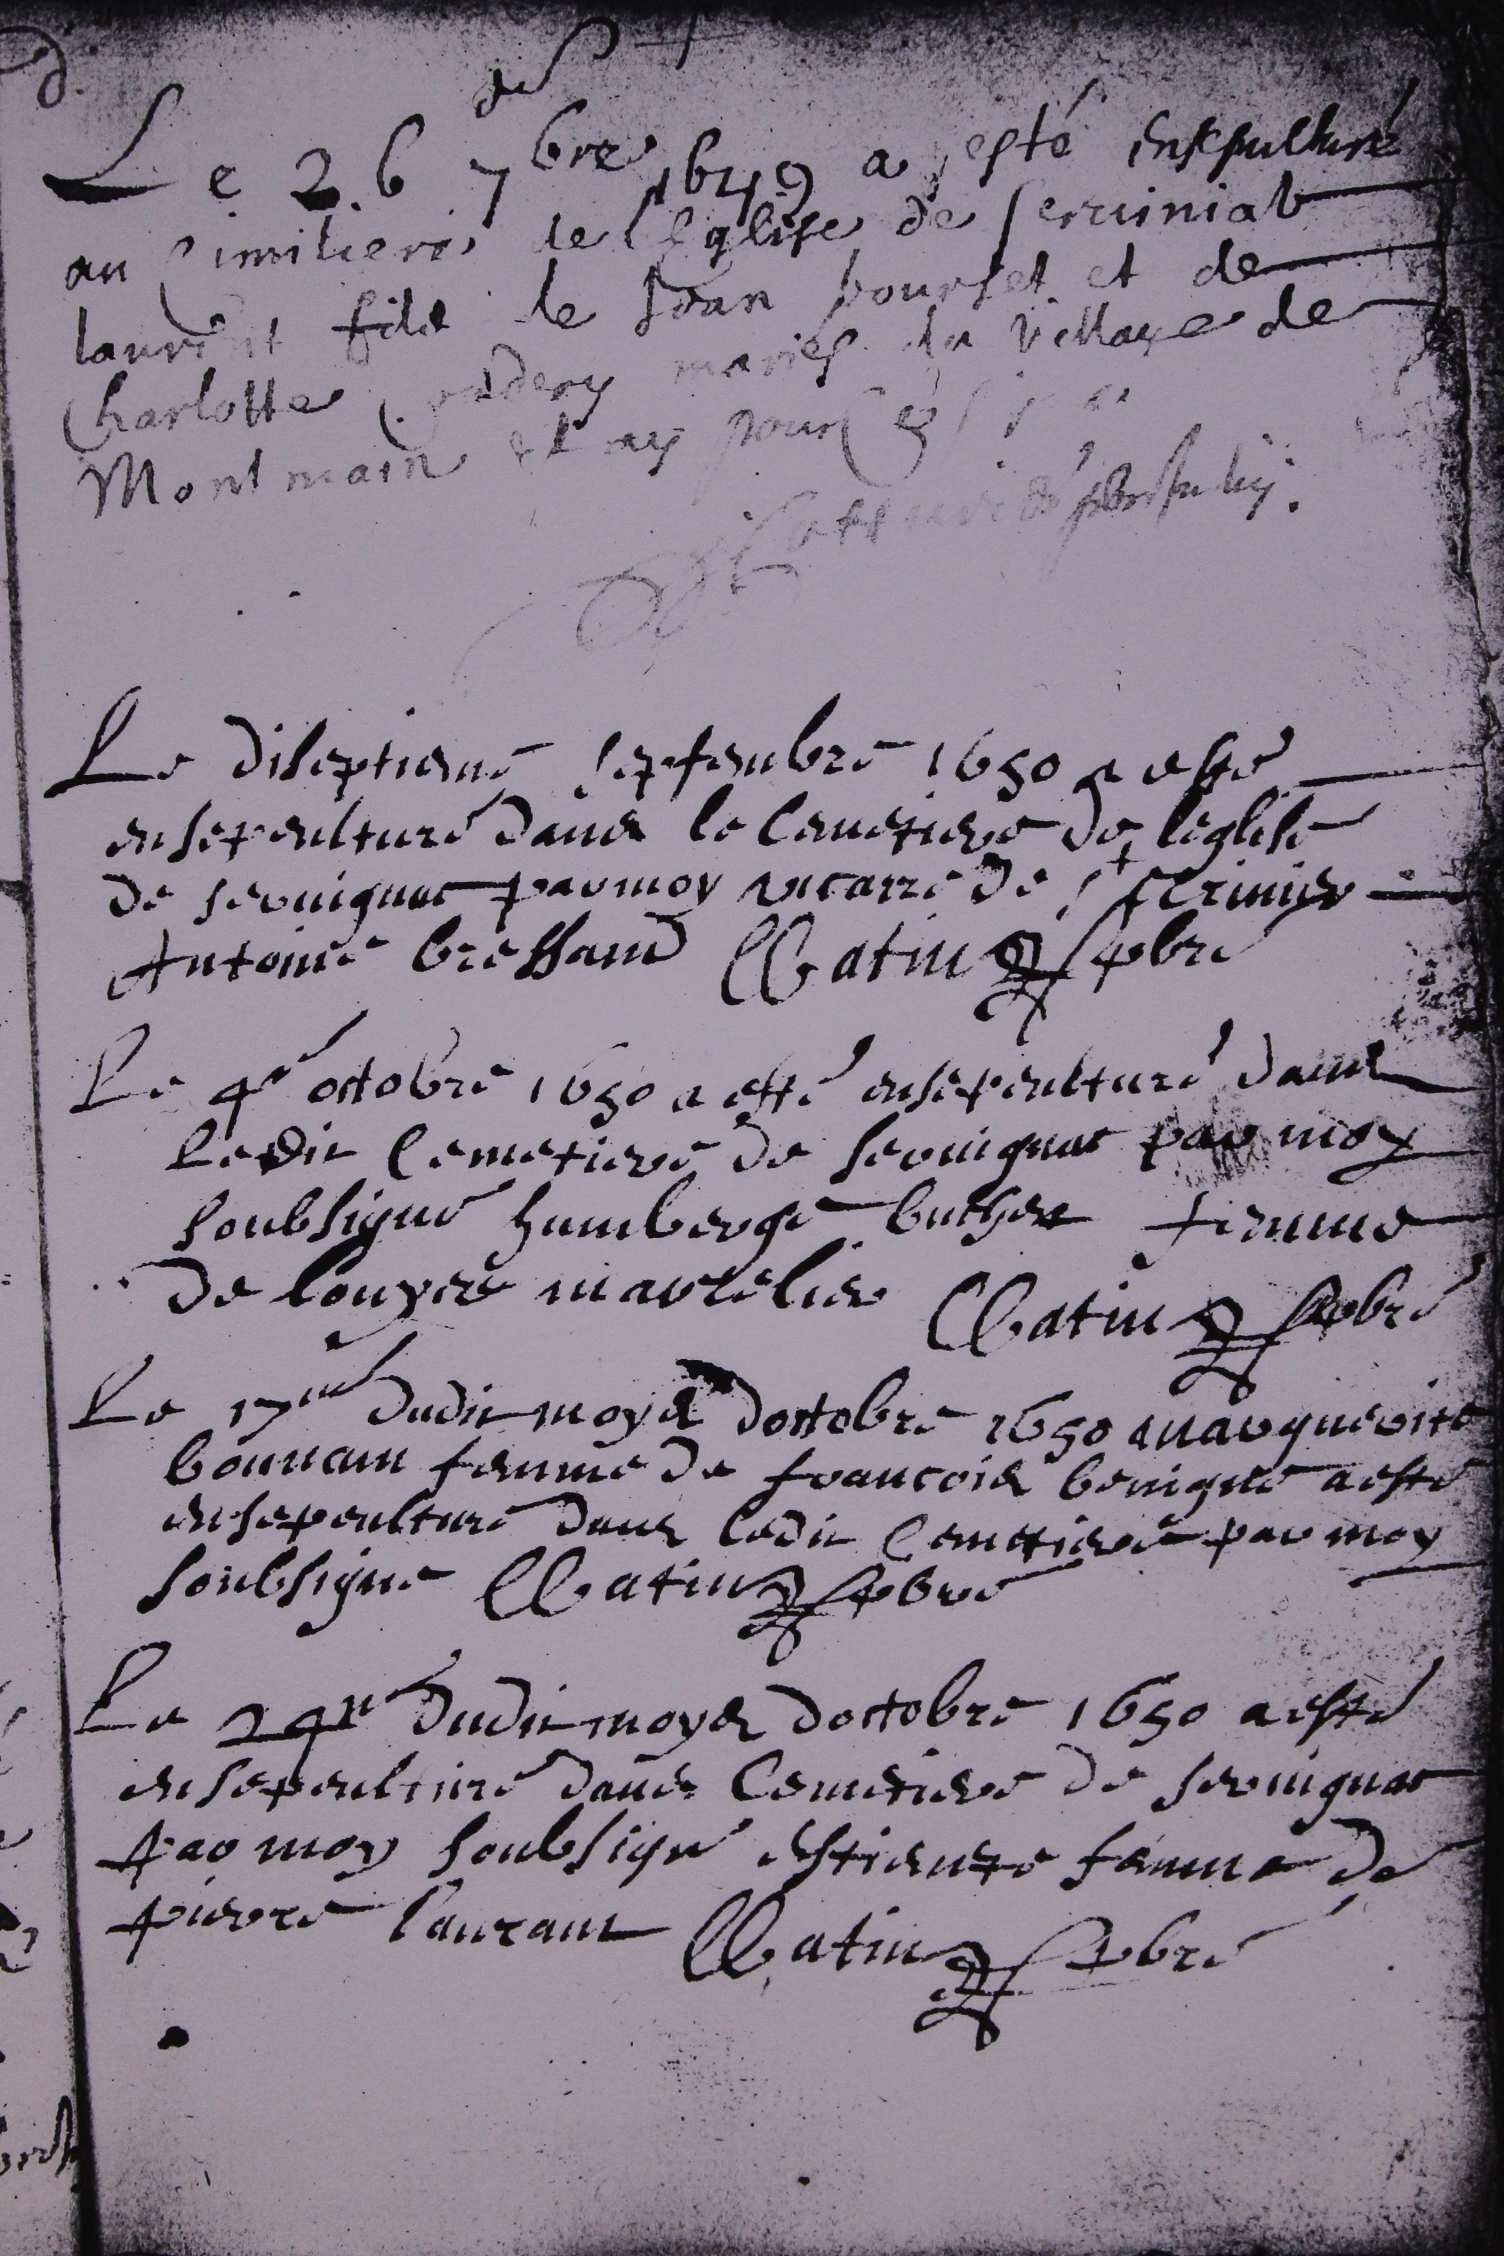 Le 26 7bre 1649 a esté ensepulturé
au Cimitiere de l'Eglise de Serviniat
laurent fils de Jean bourset et de
Charlotte mariés du village de
Montmain
Le diseptiemé septembre 1650 a esté
ensepeulturé dans le Cemetiere de leglise
de sevuignac par moy vicaire de St
Antoine bressand Gatin pbre
Le 4e octobre 1650 a esté ensepeulturé dans
Ledit Cemetiere de sevuignac par moy
soubsigné humberge buchet femme
de Gatin pbre
Le 17e dudit moys doctobre 1650 marguerite
bonnain femme de francois benigne a esté
ensepeulturé dans ledit Cemetiere par moy
soubsigné Gatin pbre
Le 24e dudit moys doctobre 1650 a esté
ensepeulturé dans Cemetiere de sevuignac
par moy soubsigné femme de
pierre laurant Gatin pbre